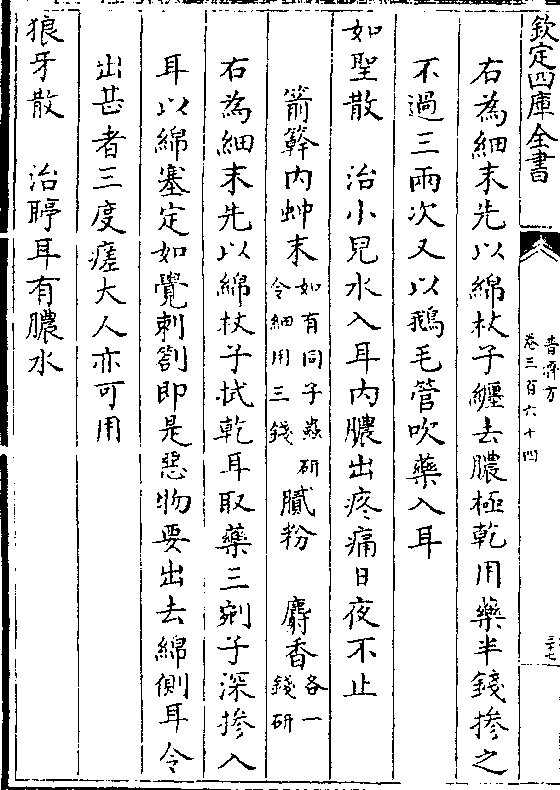 欽定四庫全書
普濟方
卷三百六十四
二十七
右為細末先以綿杖子纏去膿極乾用藥半錢摻之
不過三兩次又以鵝毛管吹藥入耳
如聖散　治小兒水入耳内膿出疼痛日夜不止
箭簳内蚛末如有同子蟲研令細用三錢　膩粉　麝香各一錢研
右為細末先以綿杖子拭乾耳取藥三剜子深摻入
耳以綿塞定如覺刺劄即是惡物要出去綿側耳令
出甚者三度瘥大人亦可用
狼牙散　治聤耳有膿水